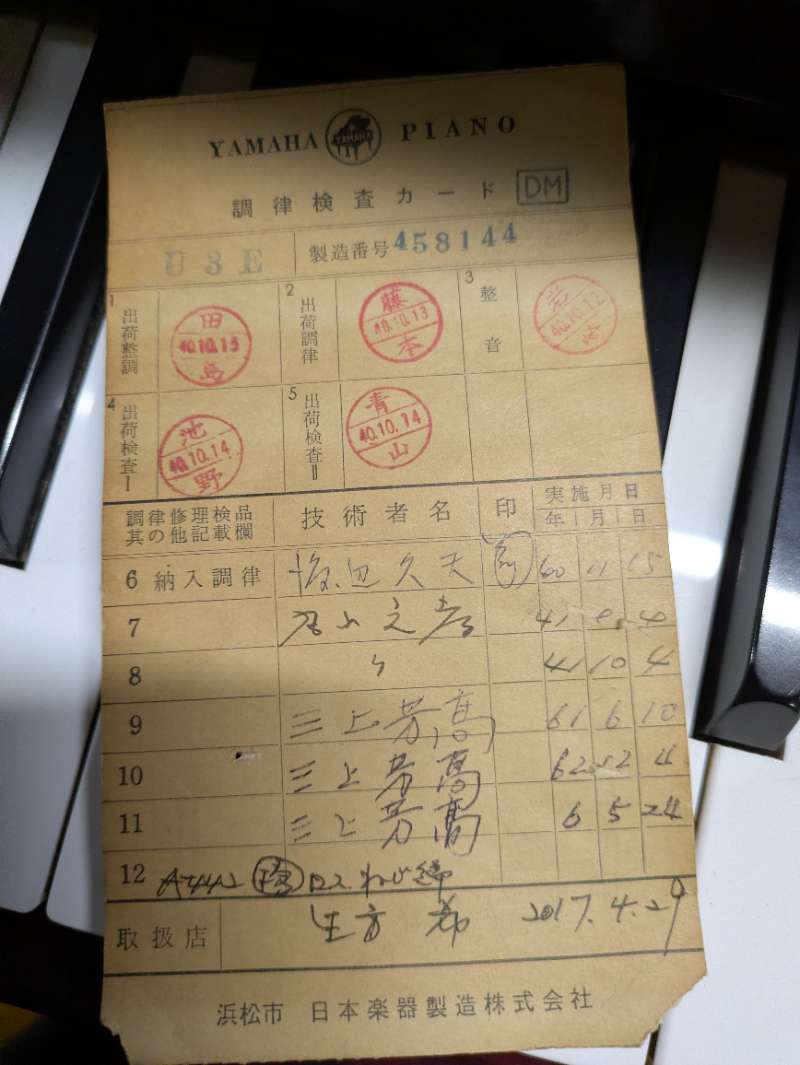 YAMAHA YAMAHA PIANO
調律検査カード DM
U3E 製造番号 458144
1 出荷整調 田 40.10.13 島
2 出荷調律 藤 40.10.13 本
3 整音 岩 40.10.12
4 出荷検査I 池 40.10.14 野
5 出荷検査II 青 40.10.14 山
調律修理検品 技術者名 印 実施月日
其の他記載欄 年 月 日
6 納入調律 渡辺久夫 11 15
7 41 4
8 〃 41 10 4
9 三上芳高 61 6 10
10 三上芳高 62 4
11 三上芳高 6 5 24
12 A=442
取扱店 生方 希 2017.4.29
浜松市 日本楽器製造株式会社